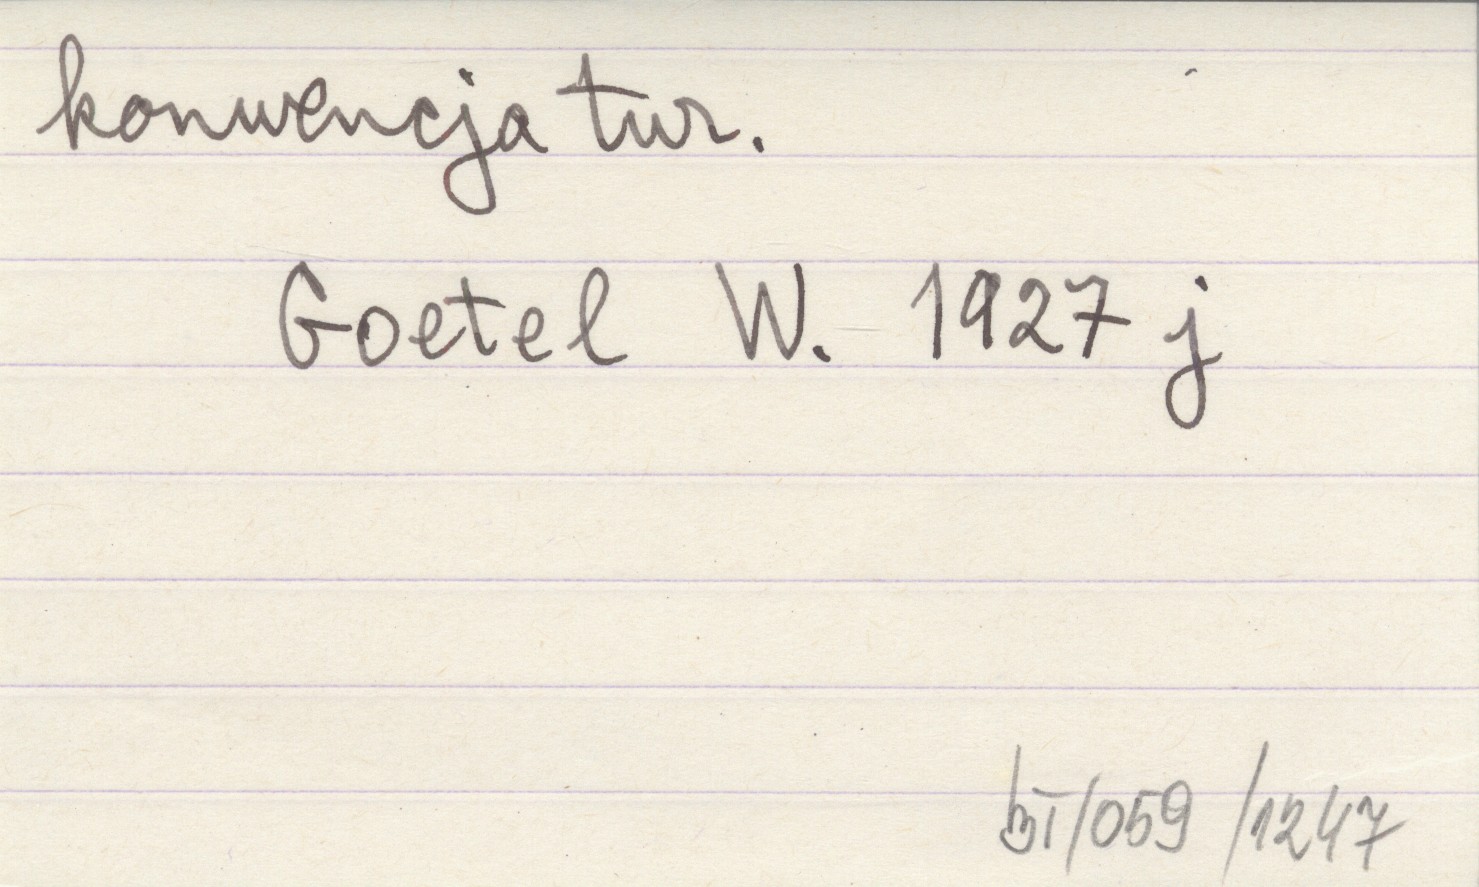 konwencja tur.
Goetel W. 1927 j
bI/059/1247